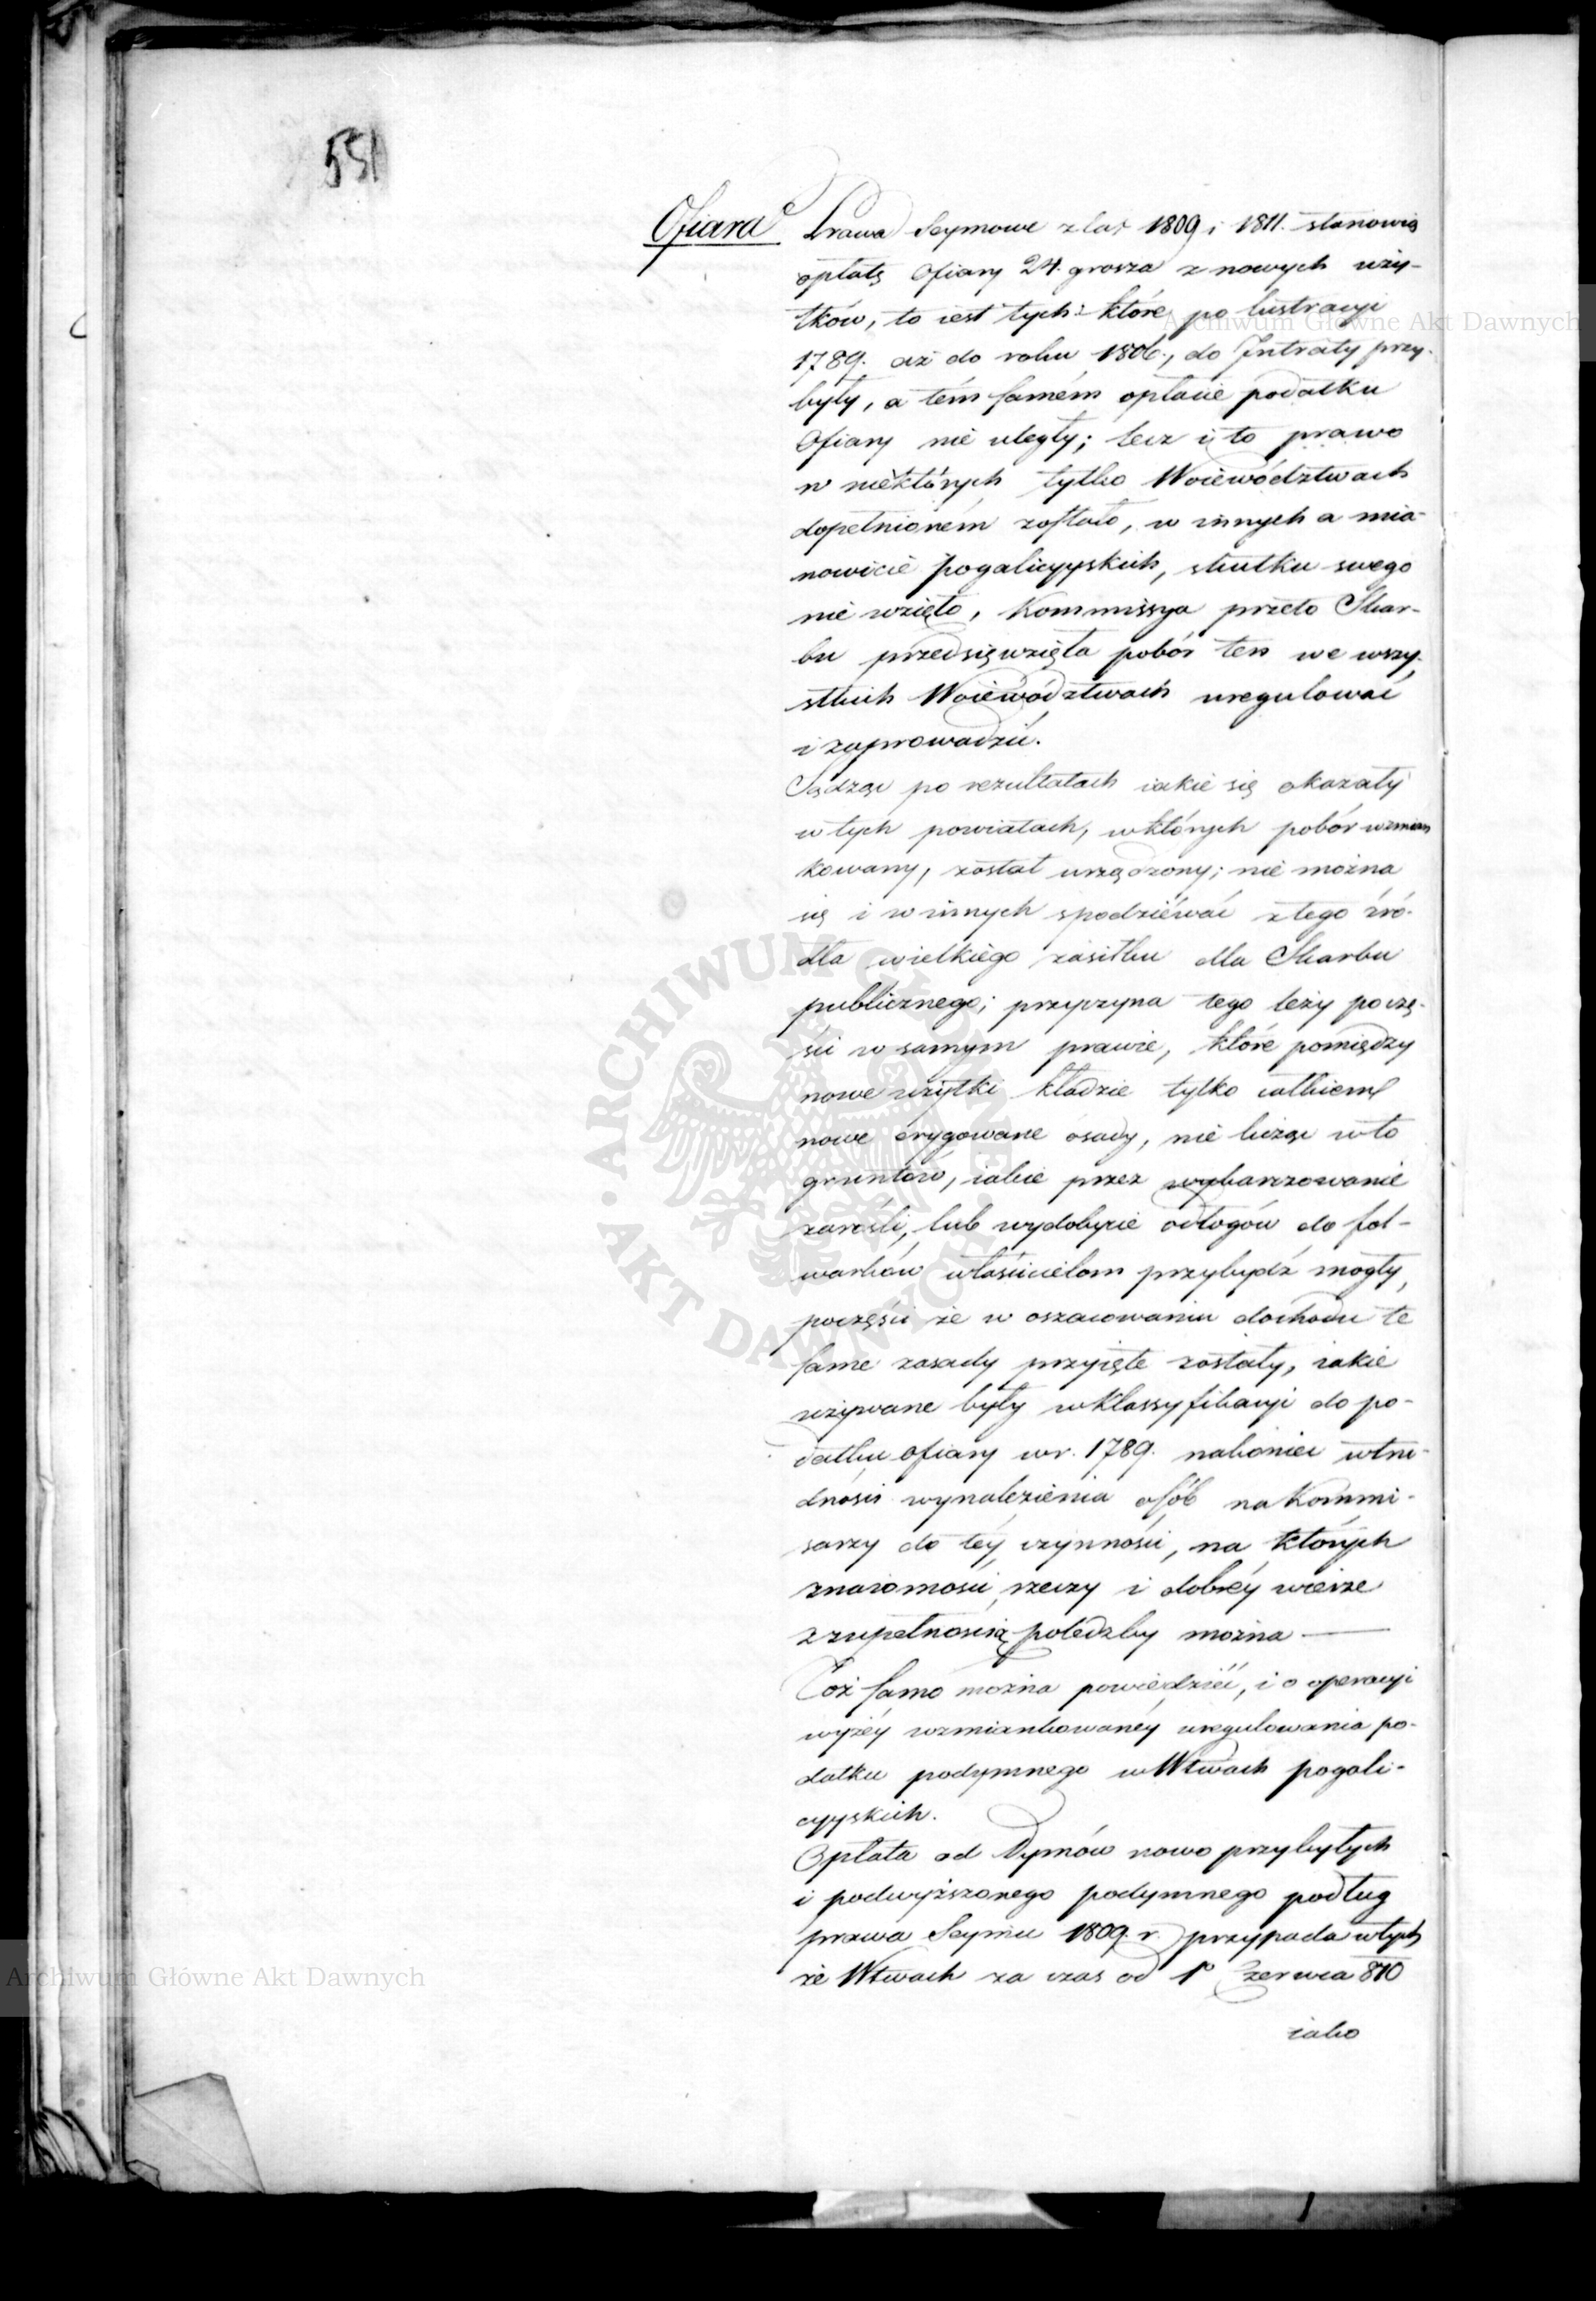 551
Ofiara
Prawa Seymowe z lat 1809 i 1811. stanowią
opłatę Ofiary 24. grosza z nowych uży-
tków, to iest tych: które po lustracyi
1789. aż do roku 1806., do Intraty przy-
były, a tém samém opłacie podatku
Ofiary nie uległy; lecz i to prawo
w niektórych tylko Woiewództwach
dopełnioném zostało, w innych a mia-
nowicie pogalicyyskich, skutku swego
nie wzięło, Kommissya przeto Skar-
bu przedsięwzięła pobór ten we wszy-
stkich Woiewództwach uregulować
i zaprowadzić.
Sądząc po rezultatach iakie się okazały
w tych powiatach, w których pobór wzmian
kowany, został urządzony; nie można
się i w innych spodziéwać z tego źró-
dła wielkiego zasiłku dla Skarbu
publicznego; przyczyna tego leży po czę-
ści w samym prawie, które pomiędzy
nowe użytki kładzie tylko całkiem
nowe erygowane osady, nie licząc w to
gruntów, iakie przez wykarczowanie
zarośli, lub wydobycie odłogów do fol-
warków właścicielom przybydź mogły,
poczęści że w oszacowaniu dochodu te
same zasady przyięte zostały, iakie
używane były w klassyfikacyi do po-
datku ofiary w r. 1789. nakoniec w tru-
dności wynalezienia osób na Kommi-
sarzy do téy czynności, na których
znaiomości rzeczy i dobréy wierze
z zupełnością polédzby można —
Toż samo można powiedzieć, i o operacyi
wyżéy wzmiankowanéy uregulowania po-
datku podymnego w Wtwach pogali-
cyyskich.
Opłata od Dymów nowo przybyłych
i podwyższonego podymnego podług
prawa Seymu 1809. r. przypada w tych
że Wtwach za czas od 1º Czerwca 810
iako
Archiwum Główne Akt Dawnych
Archiwum Główne Akt Dawnych
ARCHIWUM GŁÓWNE AKT DAWNYCH